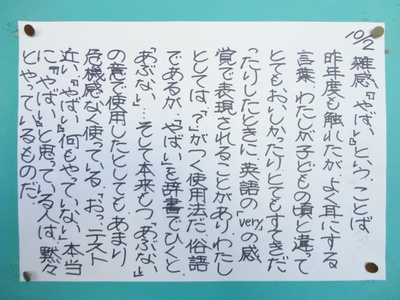 10/2 雑感『“やばい”』という、ことば
昨年度も触れたが、よく耳にする
言葉、わたしが子どもの頃と違って
とてもおいしかったり、とてもすてきだ
ったりしたときに、英語の「very」の感
覚で表現されることがあり、わたし
としては、「?」がつく使用法だ。俗語
であるが、“やばい”を辞書でひくと、
「あぶない」…そして本来もつ「あぶない」
の意で使用したとしても、あまり
危機感なく使っている。「おっ、テスト
近い。“やばい”何もやっていない」本当
に“やばい”と思っている人は、黙々
とやっているものだ。